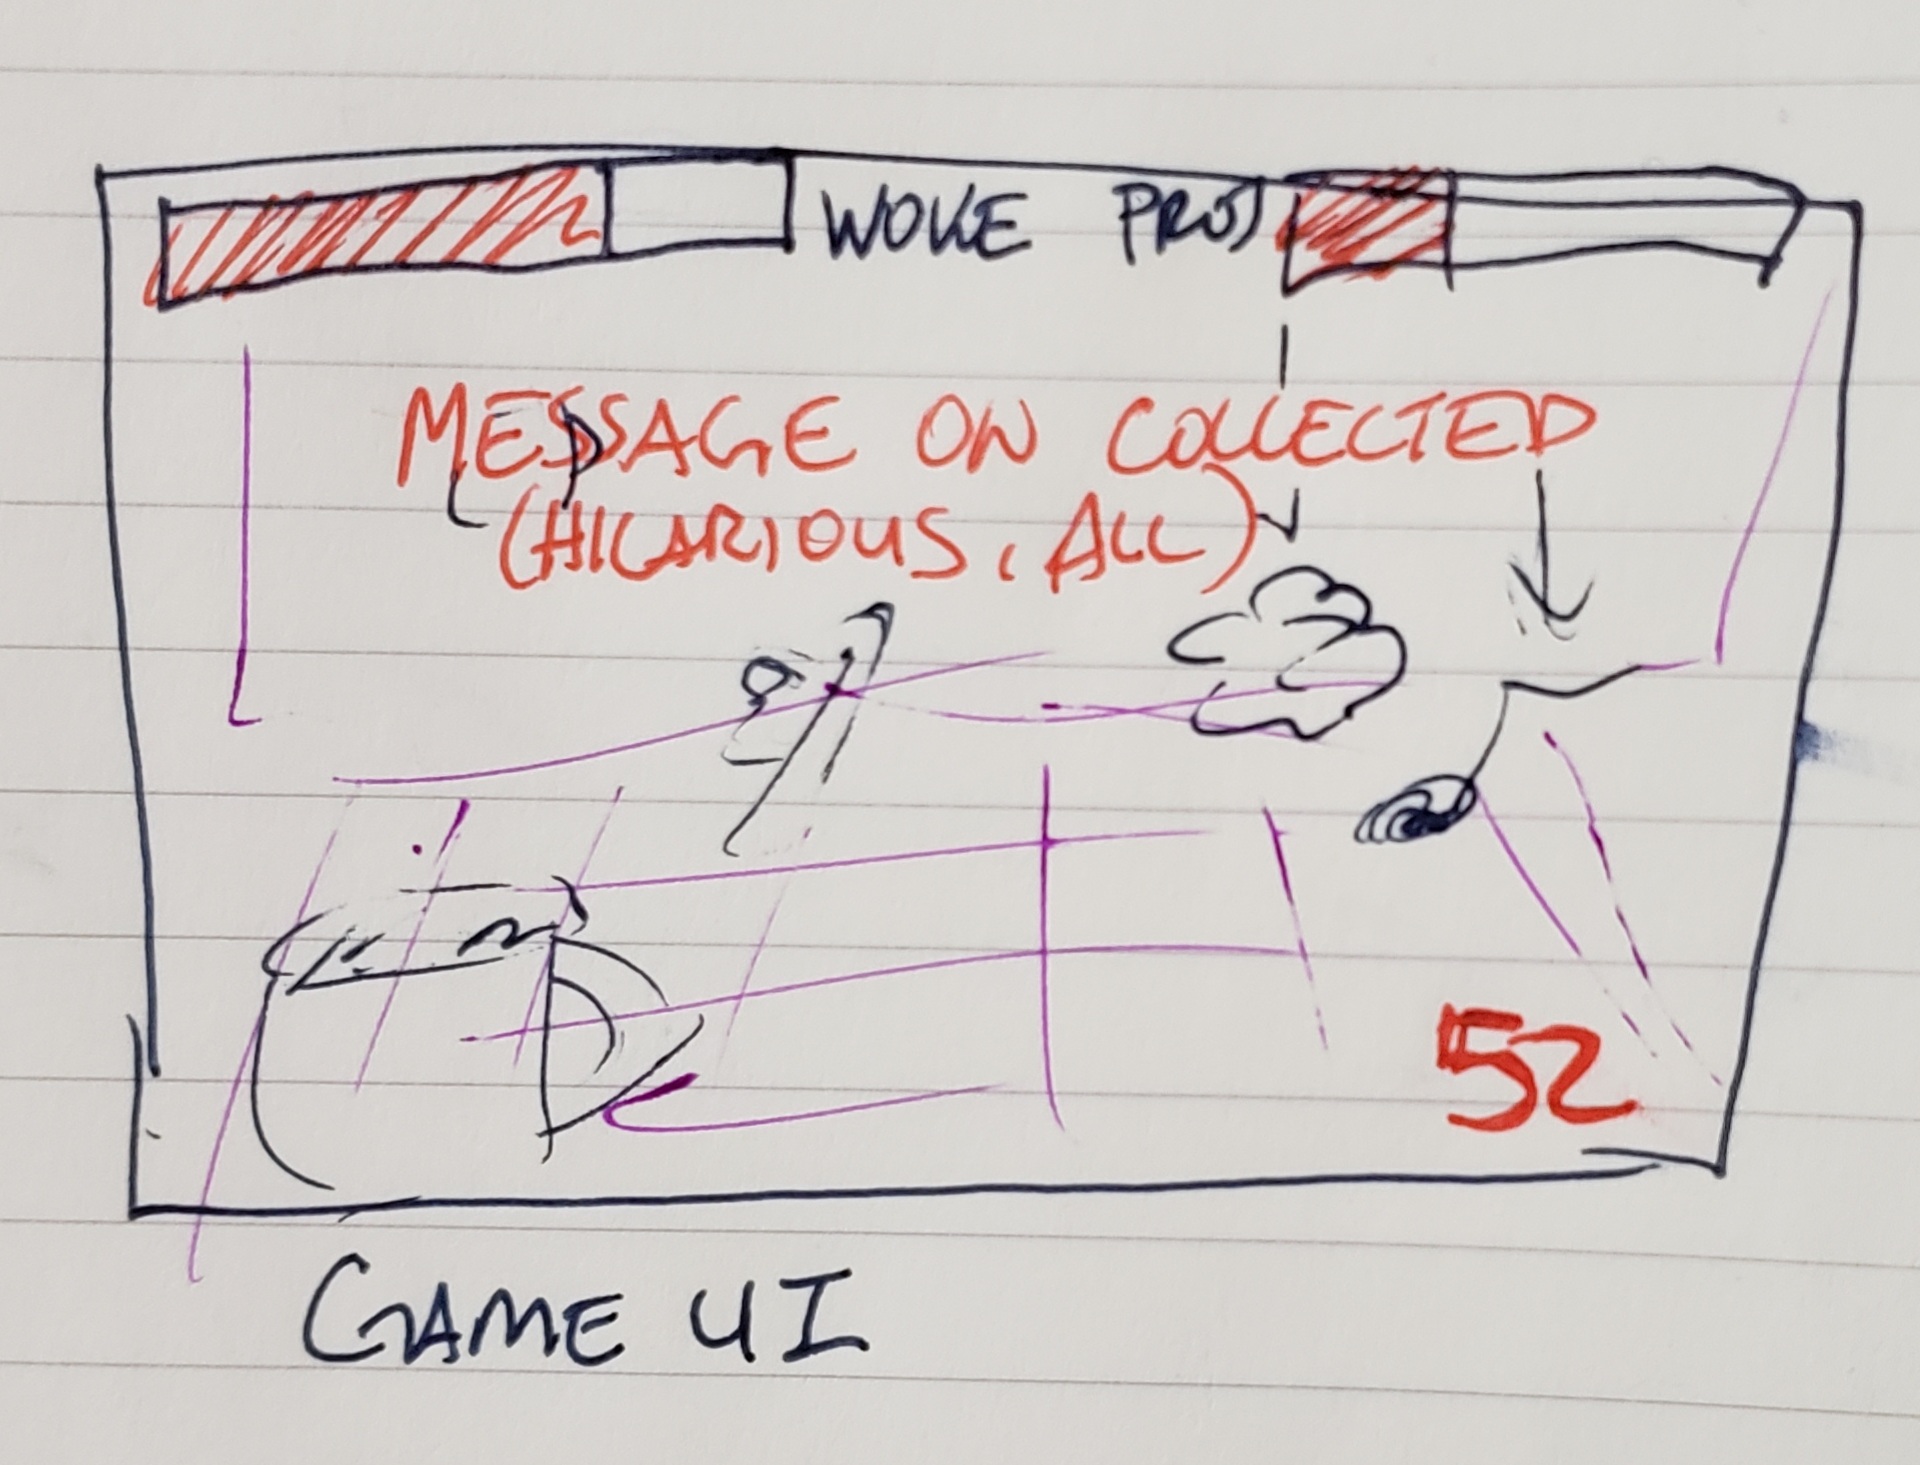 WOKE PROJ
MESSAGE ON COLLECTED
(HILARIOUS, ALL)
52
GAME UI